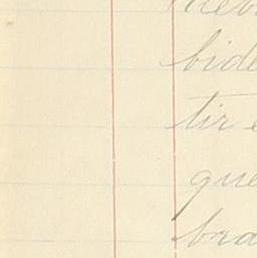 bide
tir e
que
bra